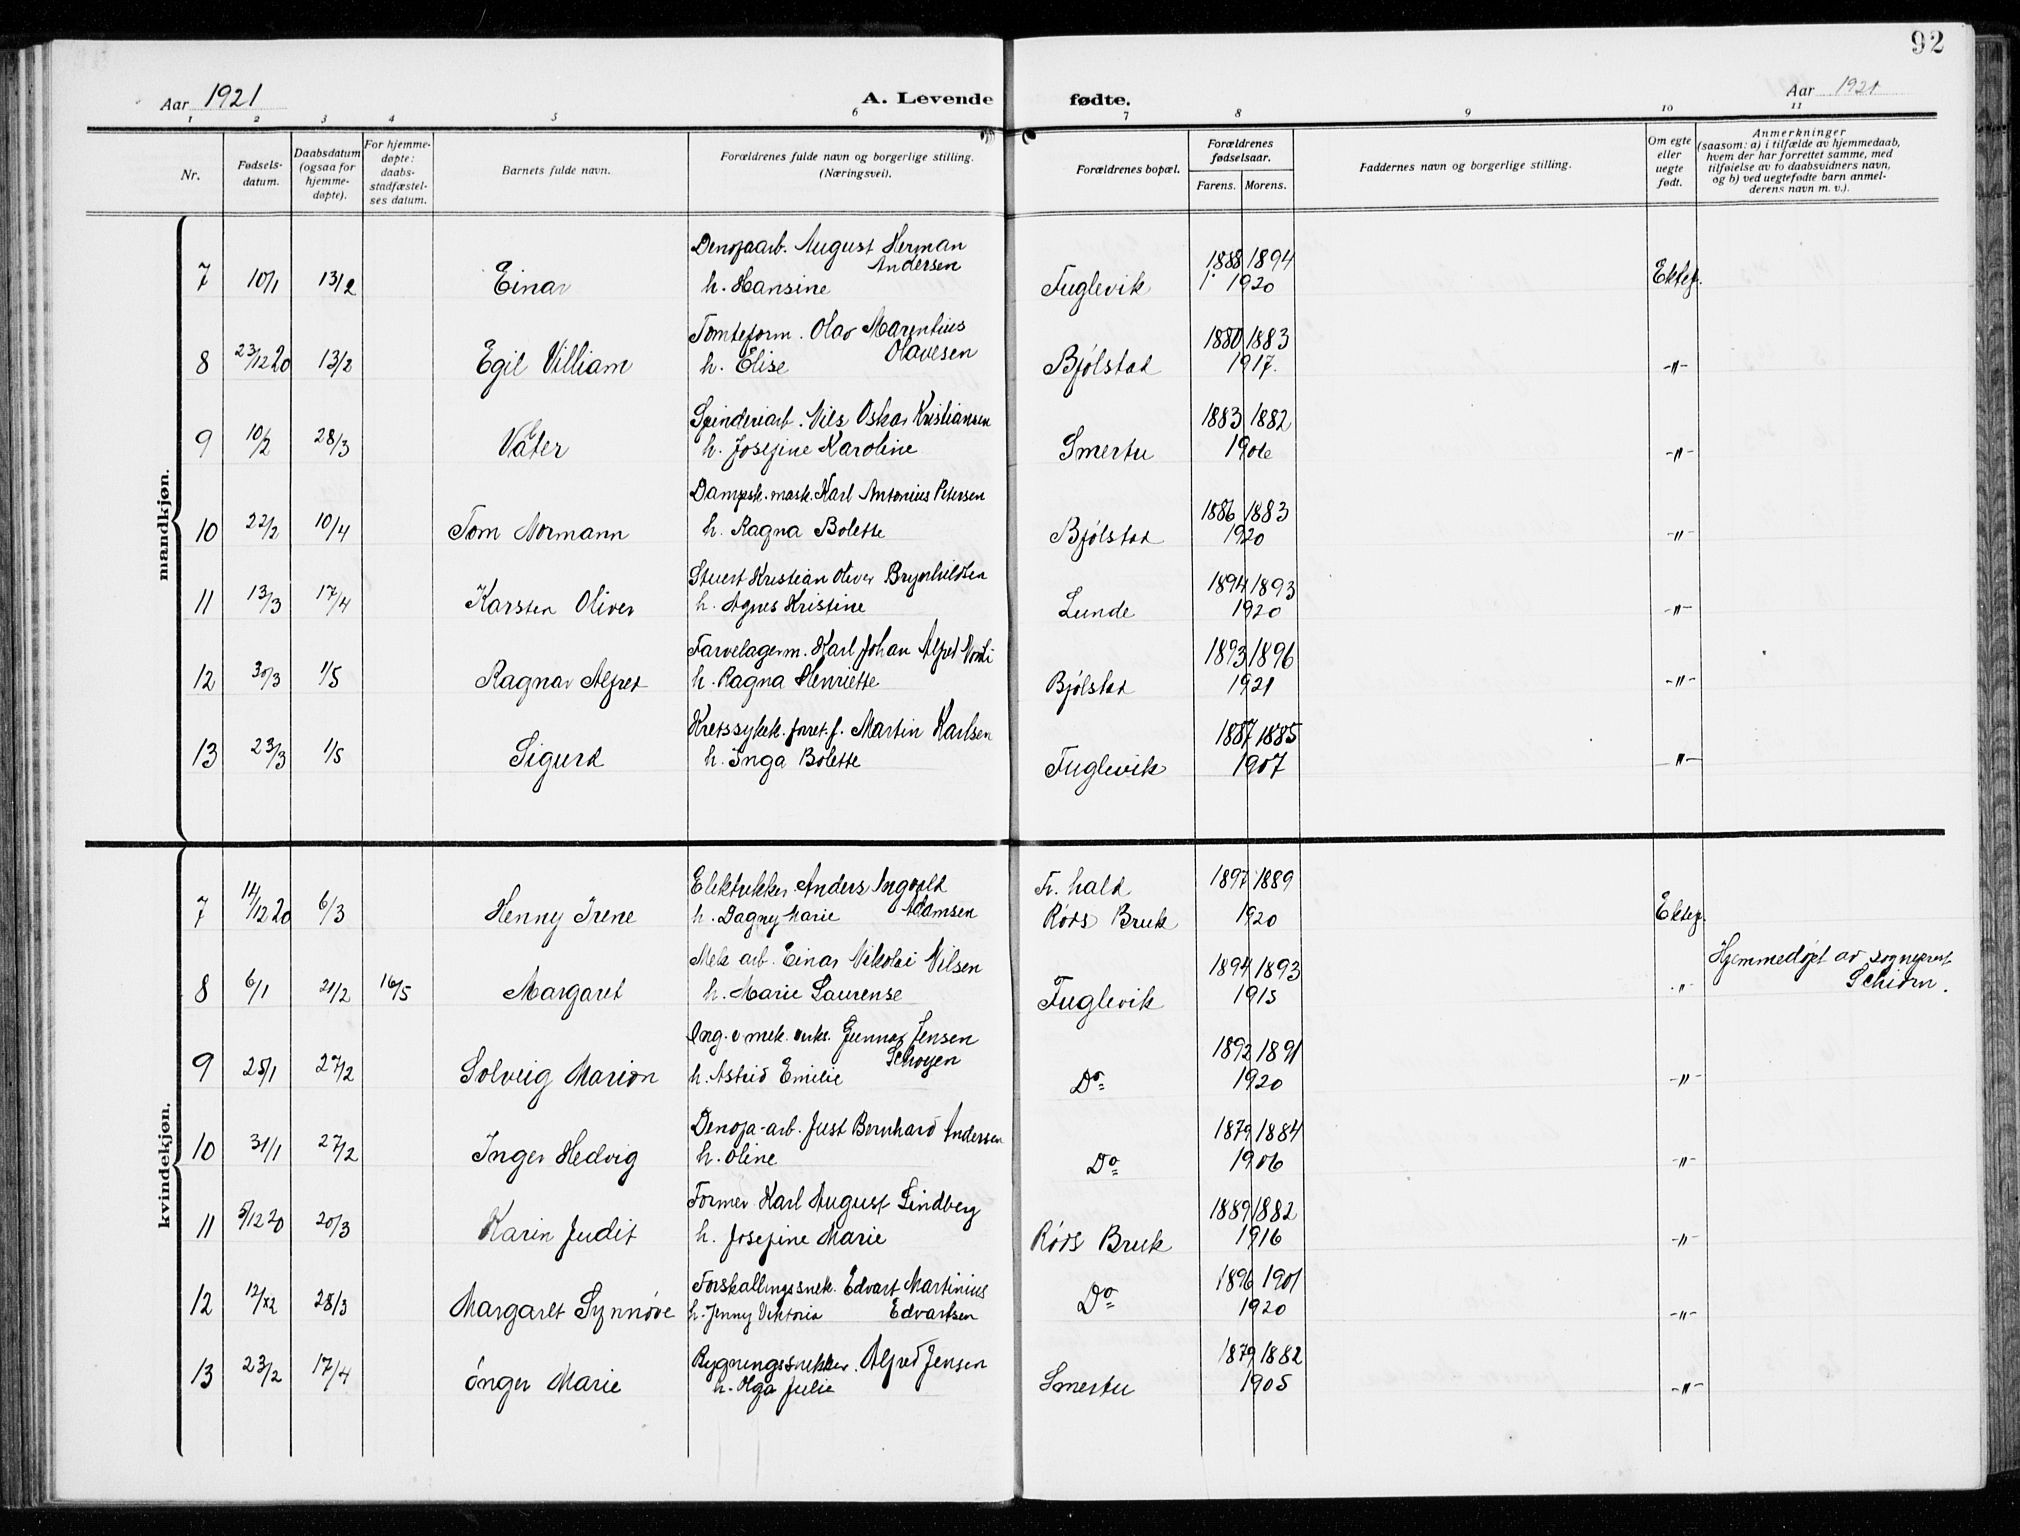 92
Aar 1921 A. Levende fødte. Aar 1921
1 2 3 4 5 6 7 8 9 10 11
Nr.
Fødsels-
datum.
Daabsdatum
(ogsaa for
hjemme-
døpte).
For hjemme-
døpte:
daabs-
stadfæstel-
ses datum.
Barnets fulde navn.
Forældrenes fulde navn og borgerlige stilling.
(Næringsvei).
Forældrenes bopæl.
Forældrenes
fødselsaar.
Farens. Morens.
Faddernes navn og borgerlige stilling.
Om egte
eller
uegte
født.
Anmerkninger
(saasom: a) i tilfælde av hjemmedaab,
hvem der har forrettet samme, med
tilføielse av to daabsvidners navn,
og b) ved uegtefødte barn anmel-
derens navn m. v.).
mandkjøn.
Denofaarb. August Herman
Andersen 1888 1894
7 10/1 13/2 Einar h. Hansine Fuglevik 1920 Ektef.
Tomteform. Olav Marentius
Olavesen 1880 1883
8 23/12 20 13/2 Egil Villiam h. Elise Bjølstad 1917. -"-
Spinderiarb. Nils Oskar Kristiansen 1883 1882
9 10/2 28/3 h. Josefine Karoline Smertu 1906 -"-
Dampsk. mask. Karl Antonius Petersen 1886 1883
10 22/2 10/4 Tom Normann h. Ragna Bolette Bjølstad 1920 -"-
Stuert Kristian Oliver Brynhildsen 1894 1893
11 13/3 17/4 Karsten Oliver h. Agnes Kristine Lunde 1920 -"-
Farvelagerm. Karl Johan Alfred 1893 1896
12 30/3 1/5 Ragnar Alfred h. Ragna Henriette Bjølstad 1921 -"-
Kretssykek. forret.f. Martin Karlsen 1887 1885
13 23/3 1/5 Sigurd h. Inga Bolette Fuglevik 1907 -"-
kvindekjøn.
Elektrikker Anders Ingvald Fr. hald 1897 1889
7 14/12 20 6/3 Henny Irene h. Dagny Marie Adamsen Røds Bruk 1920 Ektef.
Mek arb. Einar Nikolai Nilsen 1894 1893 Hjemmedøpt av sogneprest
8 6/1 21/2 16/5 Margaret h. Marie Laurense Fuglevik 1915 -"- Schiørn.
Ing. v mek. verks. Gunnar Jensen
Schøyen 1892 1891
9 25/1 27/2 Solveig Marion h. Astrid Emilie Do 1920 -"-
Denofa-arb. Just Bernhard Andersen 1879 1884
10 31/1 27/2 Inger Hedvig h. Oline Do 1906 -"-
Former Karl August Lindberg 1889 1882
11 5/12 20 20/3 Karin Judit h. Josefine Marie Røds Bruk 1916 -"-
Forskallingssnek. Edvart Martinius 1896 1901
12 28/3 Margaret Synnøve h. Jenny Viktoria Edvartsen Do 1920 -"-
Rygningssnekker. Alfred Jensen 1879 1882
13 23/2 17/4 Inger Marie h. Olga Julie Smertu 1905 -"-